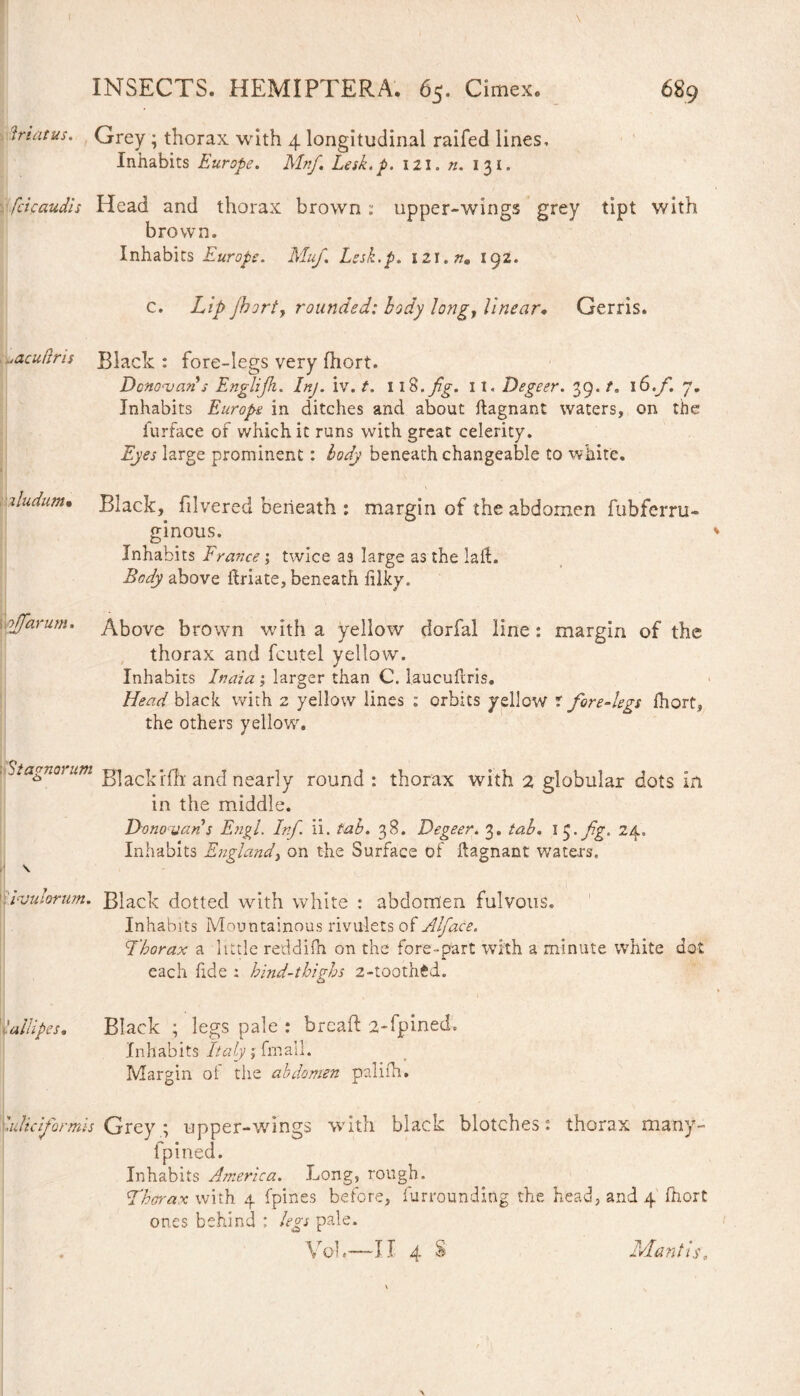 INSECTS. HEMIPTERA. 65. Cimex. 689
ſtriatus. Grey ; thorax with 4 longitudinal raiſed lines.
Inhabits Europe. Muſ. Lesk. p. 121. n. 131.
ſcicaudis Head and thorax brown : upper-wings grey tipt with
brown.
Inhabits Europe. Muſ. Lesk. p. 121. n. 192.
c. Lip ſhort, rounded: body long, linear. Gerris.
acuſtris Black : fore-legs very ſhort.
Donovan's Engliſh. Inſ. iv. t. 118. fig. 11. Degeer. 39. t. 16. f. 7.
Inhabits Europe in ditches and about ſtagnant waters, on the
ſurface of which it runs with great celerity.
Eyes large prominent : body beneath changeable to white.
aludum. Black, ſilvered beneath : margin of the abdomen ſubferru-
ginous.
Inhabits France ; twice as large as the laſt.
Body above ſtriate, beneath ſilky.
oſſarum. Above brown with a yellow dorſal line : margin of the
thorax and ſcutel yellow.
Inhabits India ; larger than C. laucuſtris.
Head black with 2 yellow lines : orbits yellow : fore-legs ſhort,
the others yellow.
Stagnorum Blackiſh and nearly round : thorax with 2 globular dots in
in the middle.
Donovan's Engl. Inſ. ii. tab. 38. Degeer. 3. tab. 15. fig. 24.
Inhabits England, on the Surface of ſtagnant waters.
ivulorum. Black dotted with white : abdomen fulvous.
Inhabits Mountainous rivulets of Alſace.
Thorax a little reddiſh on the fore-part with a minute white dot
each ſide : hind-thighs 2-toothed.
allipes. Black ; legs pale : breaſt 2-ſpined.
Inhabits Italy ; ſmall.
Margin of the abdomen paliſh.
uliciformis Grey ; upper-wings with black blotches : thorax many-
ſpined.
Inhabits America. Long, rough.
Thorax with 4 ſpines before, ſurrounding the head, and 4 ſhort
ones behind : legs pale.
Vol.—II 4 S Mantis.